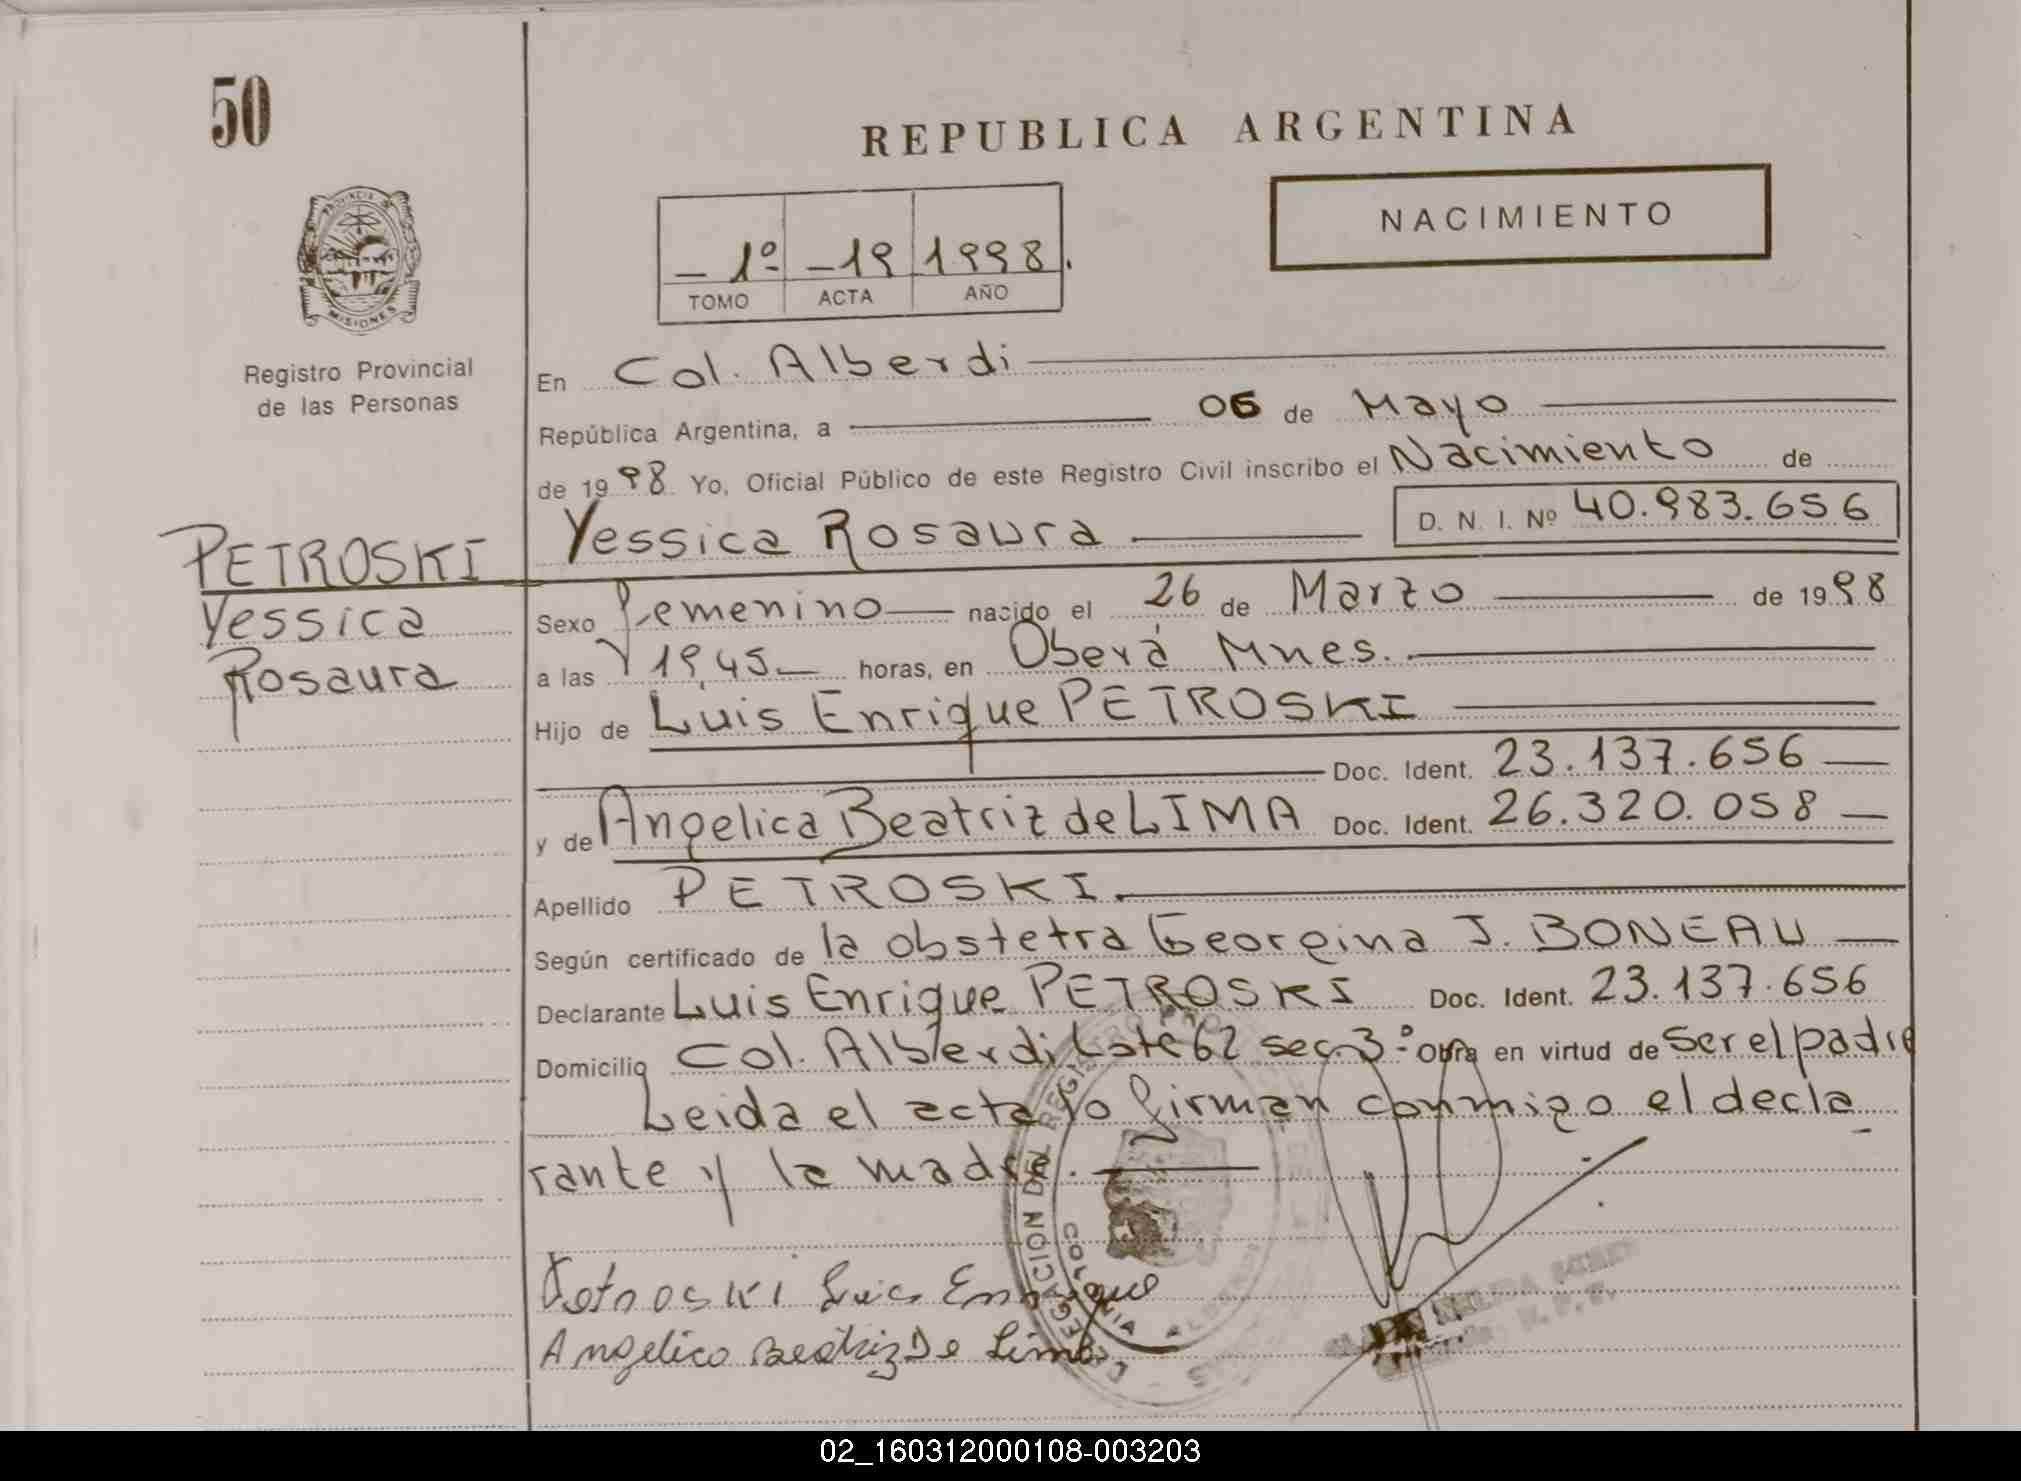 50
REPUBLICA ARGENTINA
PROVINCIA DE
MISIONES
Registro Provincial
de las Personas
- 1º - - 19 1998.
TOMO ACTA AÑO
NACIMIENTO
En Col. Alberdi
República Argentina, a 06 de Mayo
de 1998 Yo, Oficial Público de este Registro Civil inscribo el Nacimiento de
Yessica Rosaura D. N. I. Nº 40.983.656
PETROSKI
Yessica
Rosaura
Sexo Femenino nacido el 26 de Marzo de 1998
a las 19,45 horas, en Oberá Mnes.
Hijo de Luis Enrique PETROSKI
Doc. Ident. 23.137.656
y de Angelica Beatriz de LIMA Doc. Ident. 26.320.058
Apellido PETROSKI.
Según certificado de la obstetra Georgina J. BONEAU
Declarante Luis Enrique PETROSKI Doc. Ident. 23.137.656
Domicilio Col. Alberdi Lote 62 sec. 3º Obra en virtud de ser el padre
Leida el acta lo firman conmigo el decla
rante y la madre.
Petroski Luis Enrique
Angelica Beatriz De Lima
DELEGACION DEL REGISTRO
COLONIA ALBERDI
02_160312000108-003203